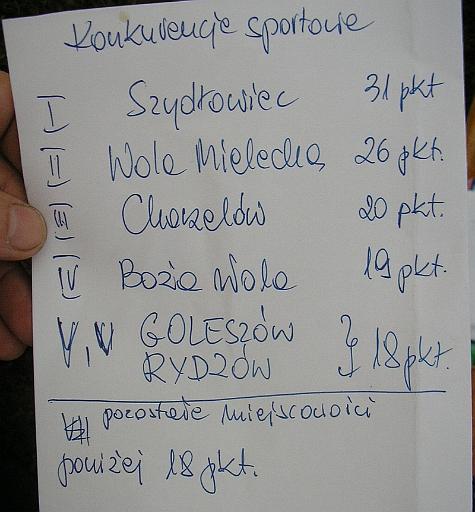 Konkurencje sportowe
I Szydłowiec 31 pkt
II Wola Mielecka 26 pkt.
III Chorzelów 20 pkt.
IV Boża Wola 19 pkt.
V, V GOLESZÓW } 18 pkt.
RYDZÓW
pozostałe miejscowości
poniżej 18 pkt.